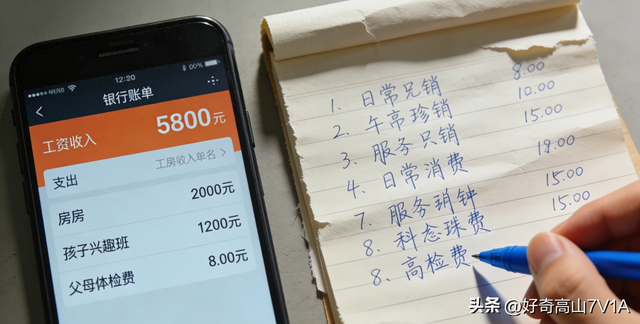 12:20
00%
银行账单
工资收入
5800元
支出
工房收入单名 >
房房
2000元
孩子兴趣班
1200元
父母体检费
8.00元
1. 日常兄销 8.00
2. 午帝珍销 10.00
3. 服务只销 15.00
4. 日常消费 19.00
7. 服务玥钟 15.00
8. 科念珠费 15.00
8. 高检费
头条 @好奇高山7V1A